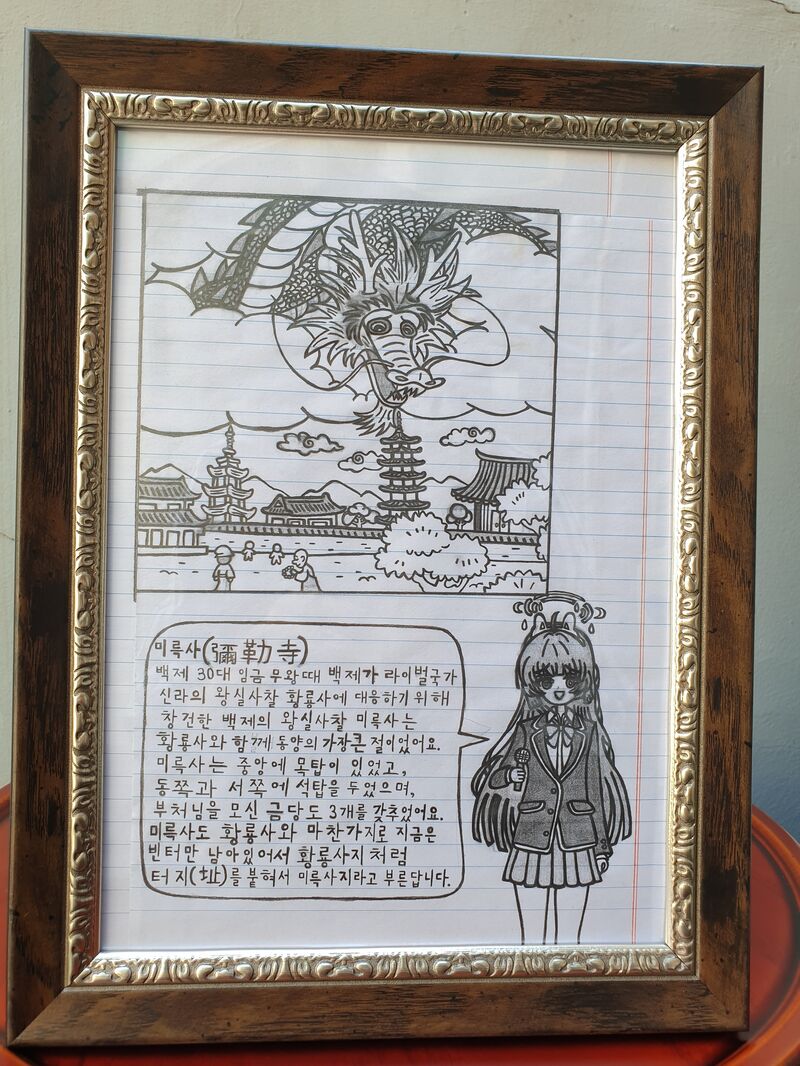 미륵사(彌勒寺)
백제 30대 임금 무왕때 백제가 라이벌국가
신라의 왕실사찰 황룡사에 대응하기 위해
창건한 백제의 왕실사찰 미륵사는
황룡사와 함께 동양의 가장큰 절이었어요.
미륵사는 중앙에 목탑이 있었고,
동쪽과 서쪽에 석탑을 두었으며,
부처님을 모신 금당도 3개를 갖추었어요.
미륵사도 황룡사와 마찬가지로 지금은
빈터만 남아있어서 황룡사지처럼
터지(址)를 붙혀서 미륵사지라고 부른답니다.